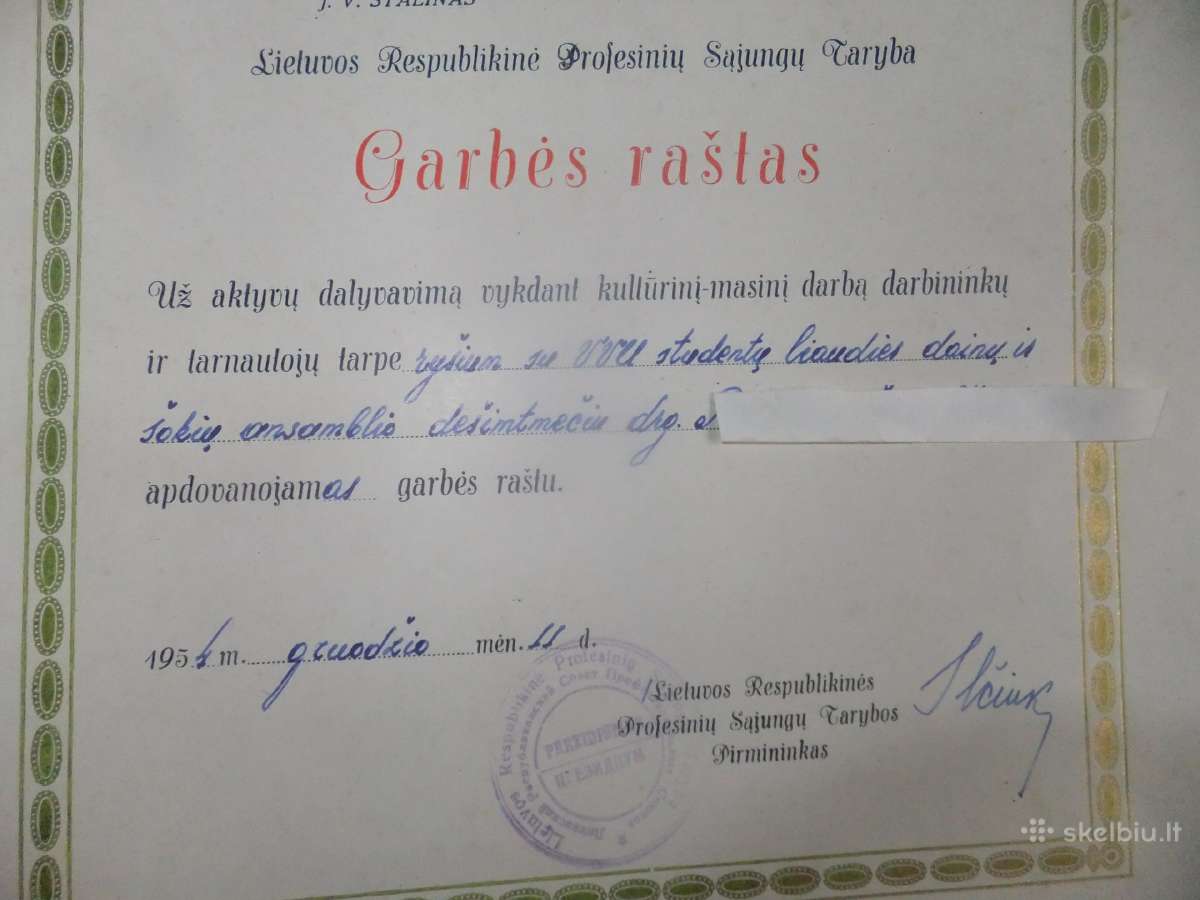 J. V. STALINAS
Lietuvos Respublikinė Profesinių Sąjungų Taryba
Garbės raštas
Už aktyvų dalyvavimą vykdant kultūrinį-masinį darbą darbininkų
ir tarnautojų tarpe ryšium su VVU studentų liaudies dainų ir
šokių ansamblio dešimtmečiu drg.
apdovanojamas garbės raštu.
1954 m. gruodžio mėn. 11 d.
Lietuvos Respublikinės
Profesinių Sąjungų Tarybos
Pirmininkas
Lietuvos Respublikinė Profesinių
PREZIDIUMAS
ПРЕЗИДИУМ
skelbiu.lt